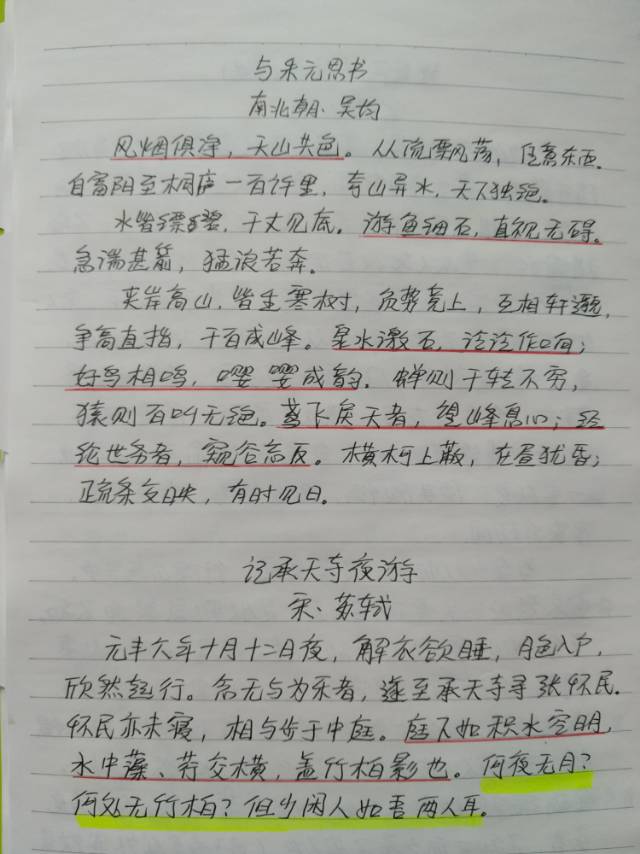 与朱元思书
南北朝·吴均
风烟俱净，天山共色。从流飘荡，任意东西。
自富阳至桐庐一百许里，奇山异水，天下独绝。
水皆缥碧，千丈见底。游鱼细石，直视无碍。
急湍甚箭，猛浪若奔。
夹岸高山，皆生寒树，负势竞上，互相轩邈，
争高直指，千百成峰。泉水激石，泠泠作响；
好鸟相鸣，嘤嘤成韵。蝉则千转不穷，
猿则百叫无绝。鸢飞戾天者，望峰息心；经
纶世务者，窥谷忘反。横柯上蔽，在昼犹昏；
疏条交映，有时见日。
记承天寺夜游
宋·苏轼
元丰六年十月十二日夜，解衣欲睡，月色入户，
欣然起行。念无与为乐者，遂至承天寺寻张怀民。
怀民亦未寝，相与步于中庭。庭下如积水空明，
水中藻、荇交横，盖竹柏影也。何夜无月？
何处无竹柏？但少闲人如吾两人耳。